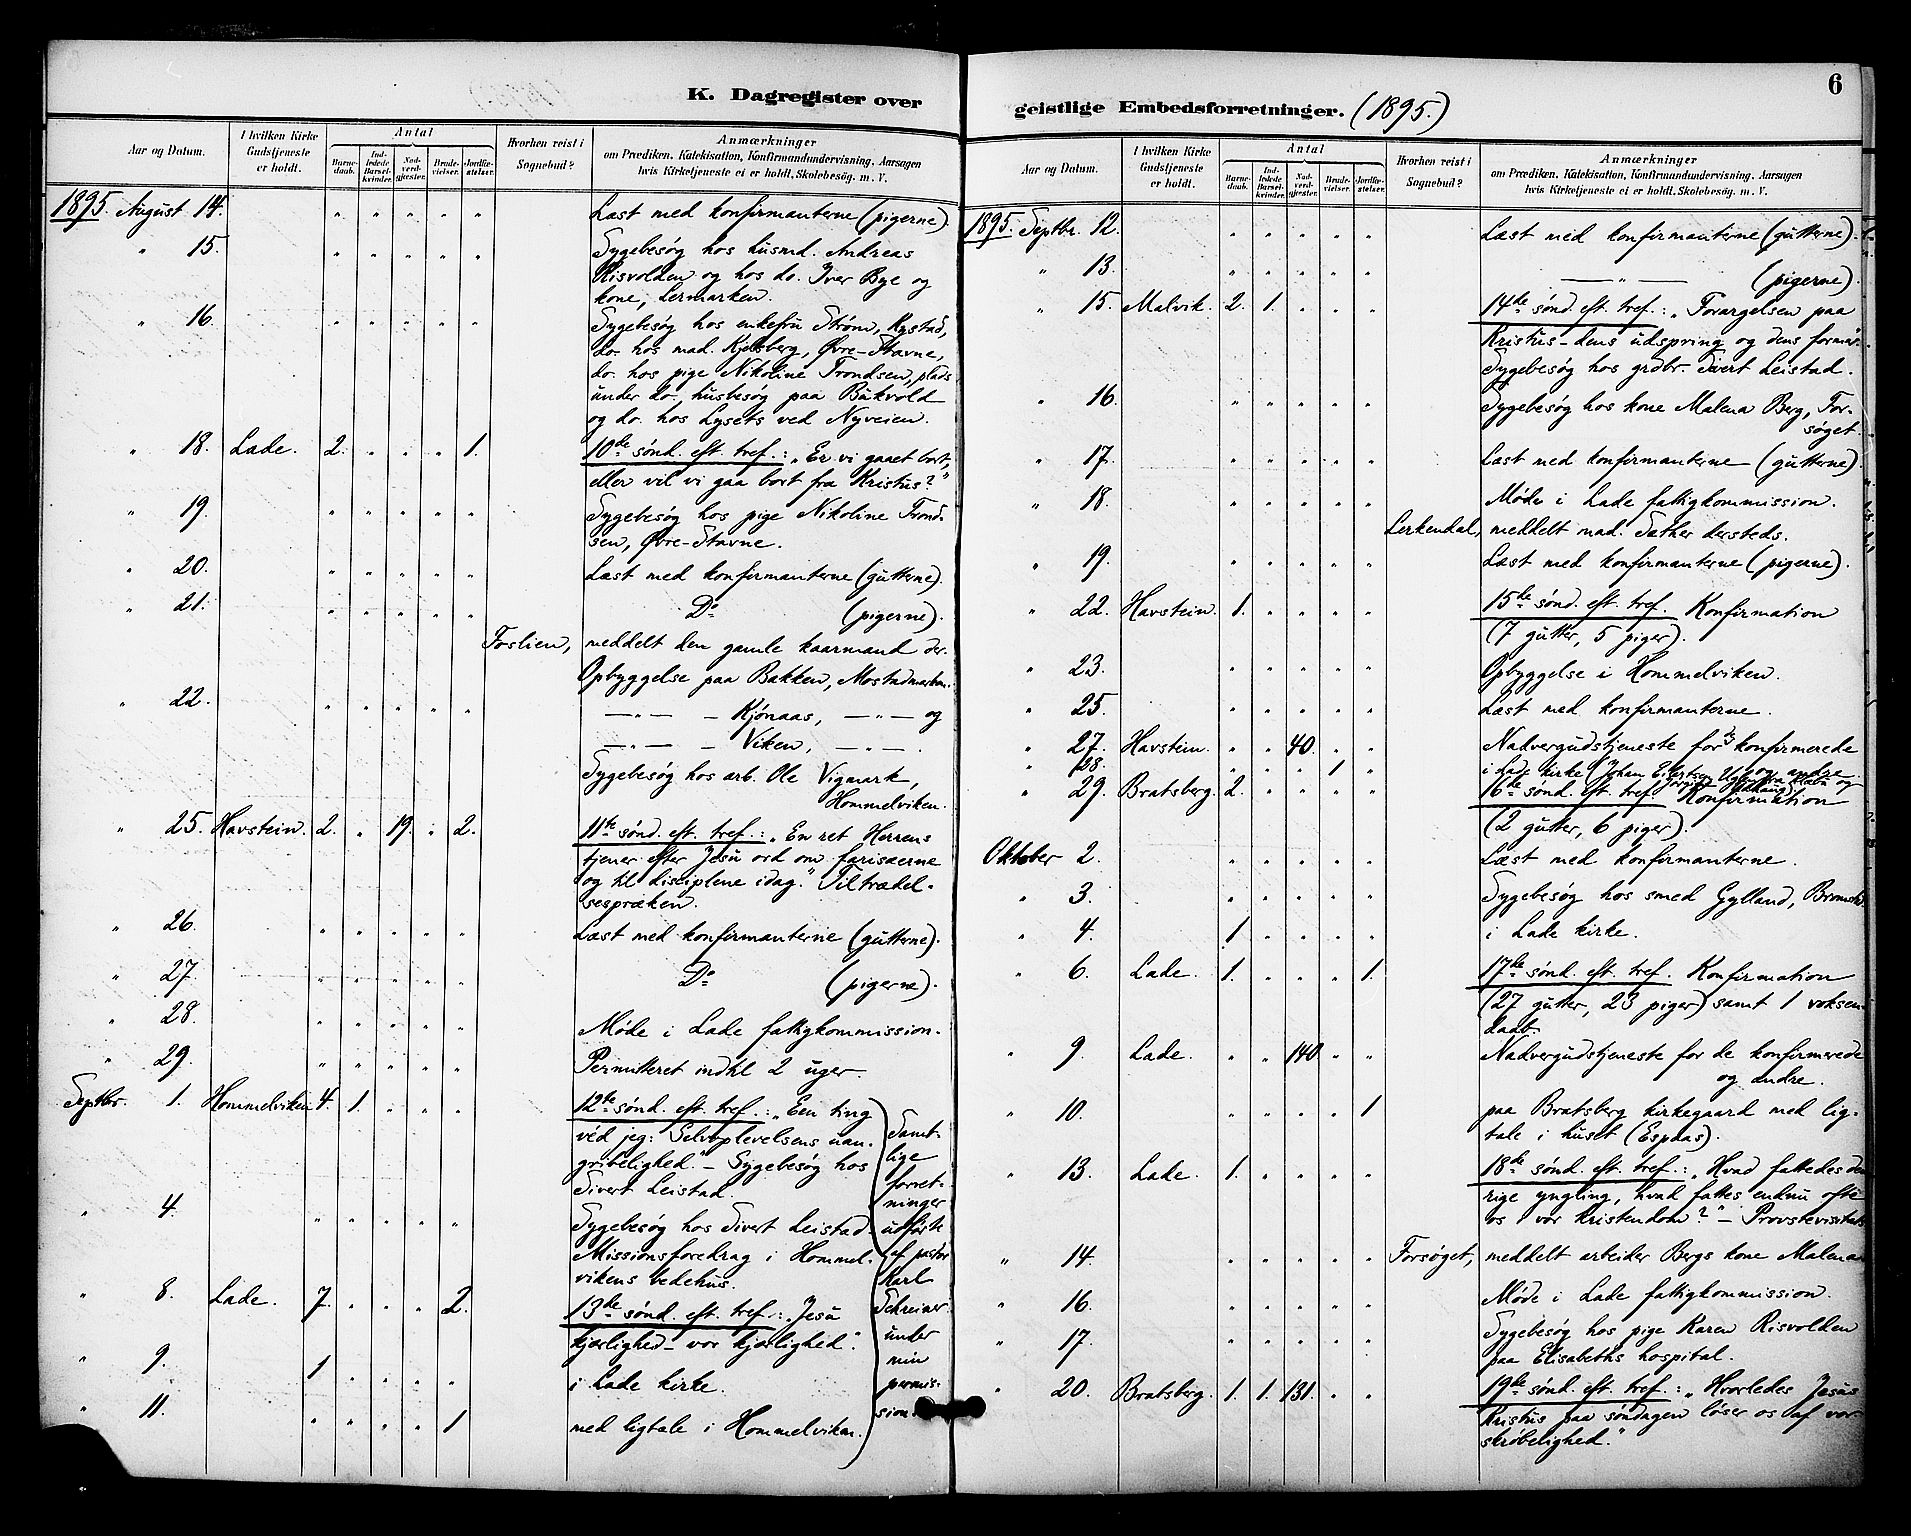 K. Dagregister over
Aar og Datum. I hvilken Kirke Gudstjeneste er holdt. Antal Barnedaab. Indledede Barselkvinder. Nadverdgjester. Brudevielser. Jordfæstelser. Hvorhen reist i Sognebud? Anmærkninger om Prædiken, Katekisation, Konfirmandundervisning, Aarsagen hvis Kirketjeneste ei er holdt, Skolebesøg. m. V.
1895. August 14. " " " " " Læst med konfirmanterne (pigerne).
" 15. " " " " " Sygebesøg hos husmd. Andreas
Risvolden og hos do. Iver Bye og
kone, Lermarken.
" 16. " " " " " Sygebesøg hos enkefru Strøm, Rystad,
do. hos mad. Kjelsberg, Øvre-Stavne,
do. hos pige Nikoline Trondsen, plads
under do., husbesøg paa Bukvold
og do. hos Lysets ved Nyveien.
" 18. Lade. 2. " " " 1. 10de sønd. eft. tref.: „Er vi gaaet bort,
eller vil vi gaa bort fra Kristus?"
" 19. " " " " " Sygebesøg hos pige Nikoline Trond-
sen, Øvre-Stavne.
" 20. " " " " " Læst med konfirmanterne (gutterne).
" 21. " " " " " Do (pigerne).
Foslien, meddelt den gamle kaarmand der.
Opbyggelse paa Bakken, Mostadmarken.
" 22. " " " " " —"— – Kjønaas, —"— og
—"— – Viken, —"—.
Sygebesøg hos arb. Ole Vigmark,
Hommelviken.
" 25. Havstein. 2. " 19. " 2. 11te sønd. eft. tref.: „En ret Herrens
tjener efter Jesu ord om farisæerne
og til disciplene idag." Tiltrædel-
sespræken.
" 26. " " " " " Læst med konfirmanterne (gutterne).
" 27. " " " " " Do (pigerne).
" 28. " " " " " Møde i Lade fattigkommission.
" 29. " " " " " Permitteret indtil 2 uger.
Septbr. 1. Hommelviken 4. 1. " " " 12te sønd. eft. tref.: „Een ting
véd jeg: Selvoplevelsens uan-
gribelighed." – Sygebesøg hos
Sivert Leistad.
" 4. " " " " " Sygebesøg hos Sivert Leistad.
Missionsforedrag i Hommel-
vikens bedehus.
" 8. Lade. 7. " " " 2. 13de sønd. eft. tref.: „Jesu
kjærlighed – vor kjærlighed".
" 9. 1 " " " " i Lade kirke.
" 11. " " " " 1 med ligtale i Hommelviken.
Samt-
lige
forret-
ninger
udførte
af pastor
Karl
Schreiner
under
min
permis-
sion.
geistlige Embedsforretninger. (1895.)
6
Aar og Datum. I hvilken Kirke Gudstjeneste er holdt. Antal Barnedaab. Indledede Barselkvinder. Nadverdgjester. Brudevielser. Jordfæstelser. Hvorhen reist i Sognebud? Anmærkninger om Prædiken, Katekisation, Konfirmandundervisning, Aarsagen hvis Kirketjeneste ei er holdt, Skolebesøg. m. V.
1895. Septbr. 12. " " " " " Læst med konfirmanterne (gutterne).
" 13. " " " " " —"— (pigerne).
" 15. Malvik. 2. 1. " " " 14de sønd. eft. tref.: „Forargelsen paa
Kristus – dens udspring og dens former.
Sygebesøg hos grdbr. Sivert Leistad.
" 16. " " " " " Sygebesøg hos kone Malena Berg, For-
søget.
" 17. " " " " " Læst med konfirmanterne (gutterne).
" 18. " " " " " Møde i Lade fattigkommission.
Lerkendal, meddelt mad. Sæther dersteds.
" 19. " " " " " Læst med konfirmanterne (pigerne).
" 22. Havstein. 1. " " " " 15de sønd. eft. tref. Konfirmation
(7 gutter, 5 piger).
" 23. " " " " " Opbyggelse i Hommelviken.
" 25. " " " " " Læst med konfirmanterne.
" 27. Havstein. " " 40. " " Nadvergudstjeneste for konfirmerede
" 28. " " " 1 " i Lade kirke (Johan Eilertsen og andre
" 29. Bratsberg. 2. " " " " 16de sønd. eft. tref. Konfirmation
(2 gutter, 6 piger).
Oktober 2. " " " " " Læst med konfirmanterne.
" 3. " " " " " Sygebesøg hos smed Gylland,
" 4. 1 " " " " i Lade kirke.
" 6. Lade. 1. " " " 1. 17de sønd. eft. tref. Konfirmation
(27 gutter, 23 piger) samt 1 voksen-
daab.
" 9. Lade. " " 140. " " Nadvergudstjeneste for de konfirmerede
og andre.
" 10. " " " " 1 paa Bratsberg kirkegaard med lig-
tale i huset (Espaas).
" 13. Lade. 1. " " " " 18de sønd. eft. tref.: „Hvad fattedes den
rige yngling, hvad fattes endnu ofte
os i vor kristendom?" – Provstevisitats
" 14. " " " " " Forsøget, meddelt arbeider Bergs kone Malena
" 16. " " " " " Møde i Lade fattigkommission.
" 17. " " " " " Sygebesøg hos pige Karen Risvolden
paa Elisabeths hospital.
" 20. Bratsberg. 1. 1. 131. " " 19de sønd. eft. tref.: „Hvorledes Jesus
Kristus paa søndagen løser os af vor
skrøbelighed."